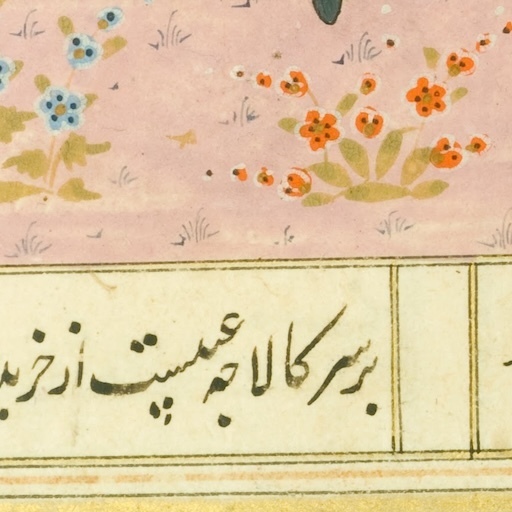 بر سر کالا چه عیبست از خرید